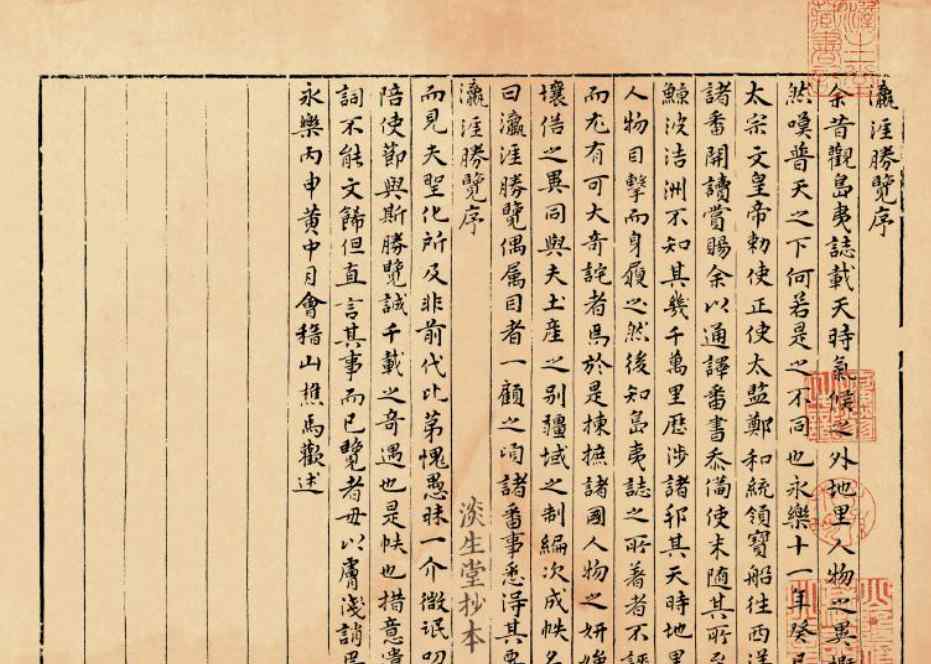 瀛涯勝覽序
余昔觀島夷誌載天時氣候之外地里人物之異
然嘆普天之下何若是之不同也永樂十一年癸
太宗文皇帝勅使正使太監鄭和統領寶船往西洋
諸番開讀賞賜余以通譯番書忝備使末随其所至
鯨波浩洲不知其幾千萬里歴涉諸邦其天時地里
人物目擊而身履之然後知島夷誌之所著者不誣
而尤有可大奇詫者焉於是棟摭諸國人物之妍
壤俗之異同與夫土產之别疆域之制編次成帙名
曰瀛涯勝覽偶属目者一顧之頃諸番事悉得其要
瀛涯勝覽序
淡生堂抄本
而見夫聖化所及非前代比第愧愚昧一介微氓叨
陪使節與斯勝覽誠千載之奇遇也是帙也措意遣
詞不能文餙但直言其事而已覽者毋以膚淺誚焉
永樂丙申黃中月會稽山樵馬歡述